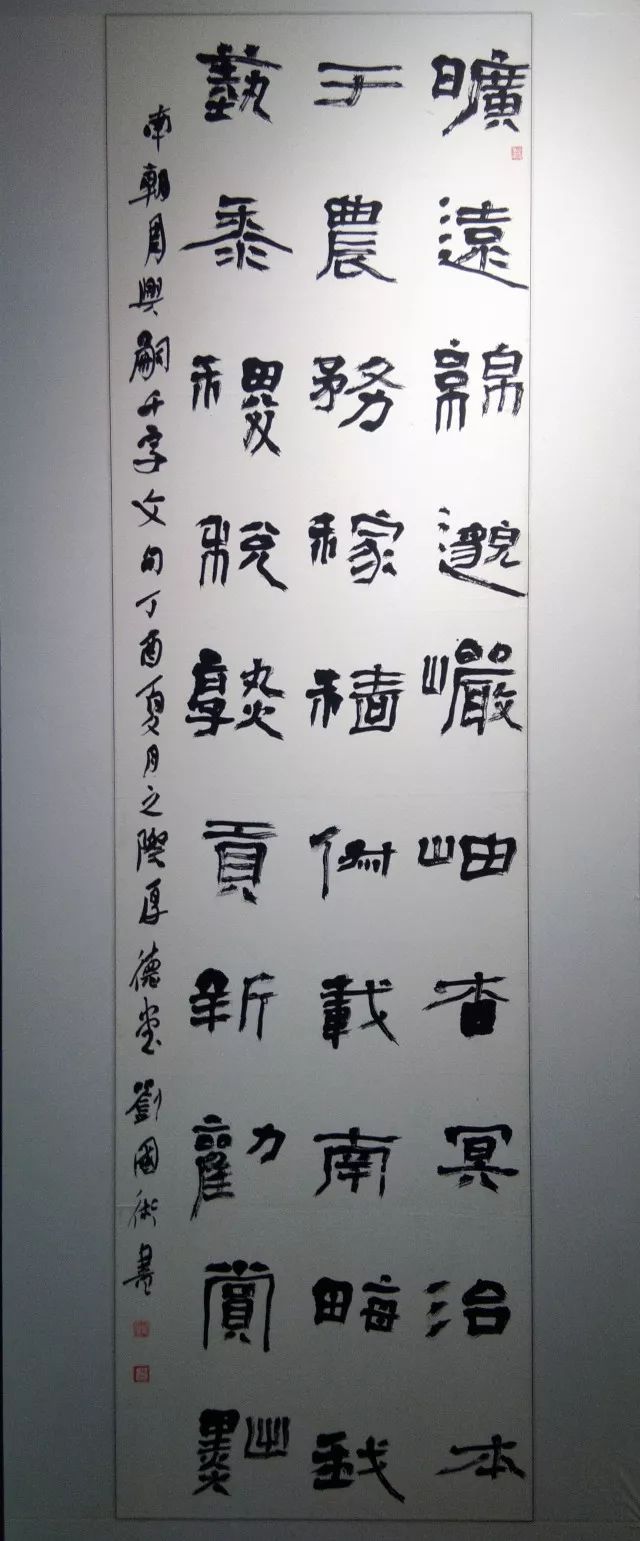 曠遠綿邈巖岫杳冥治本
于農務稼穡俶載南畮我
蓺黍稷稅熟貢新勸賞黜
南朝周興嗣千字文句丁酉夏月之際厚德堂劉國術書